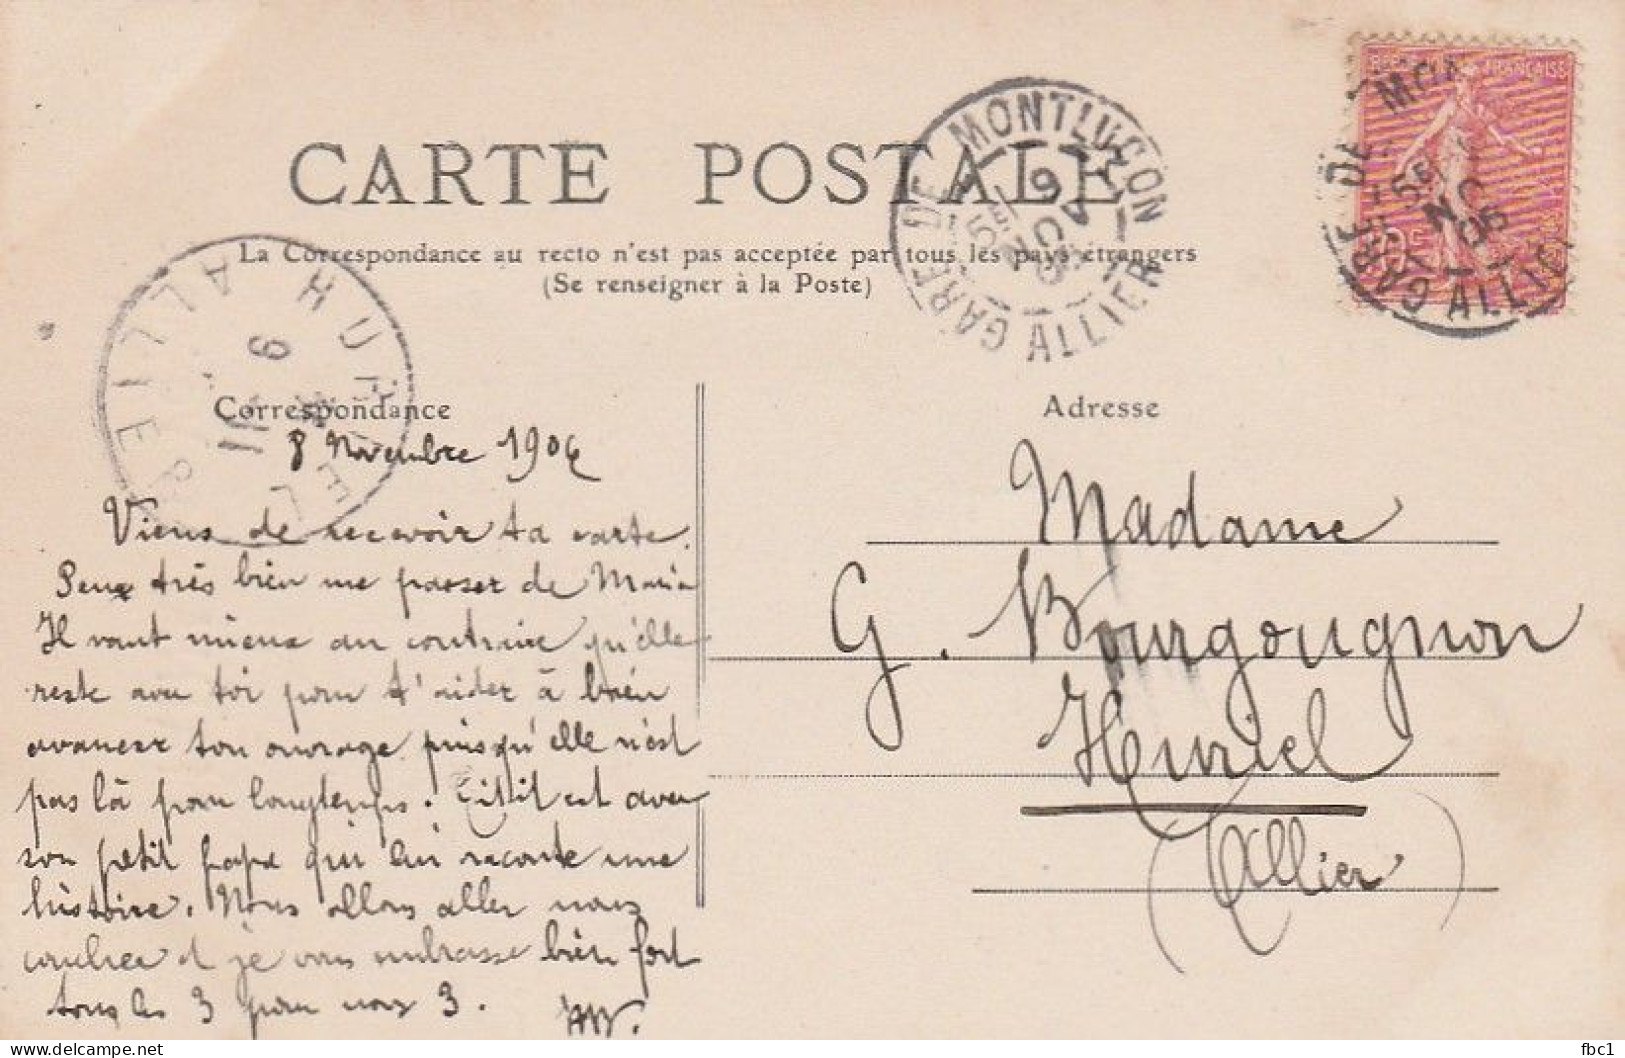 CARTE POSTALE
La Correspondance au recto n'est pas acceptée par tous les pays étrangers
(Se renseigner à la Poste)
GARE DE MONTLUÇON
ALLIER
GARE DE MON
ALLIE
FRANÇAISE
HURIEL
ALLIER
9
11
Correspondance
8 Novembre 1906
Viens de recevoir ta carte.
Peux très bien me passer de Maria
Il vaut mieux au contraire qu'elle
reste avec toi pour t'aider à bien
avancer ton ouvrage puisqu'elle n'est
pas là pour longtemps. Titit est avec
son petit papa qui lui raconte une
histoire. Nous allons aller nous
coucher et je vous embrasse bien fort
tous les 3 pour nous 3.
Adresse
Madame
G. Bourgougnon
Huriel
(Allier)
delcampe.net
fbc1